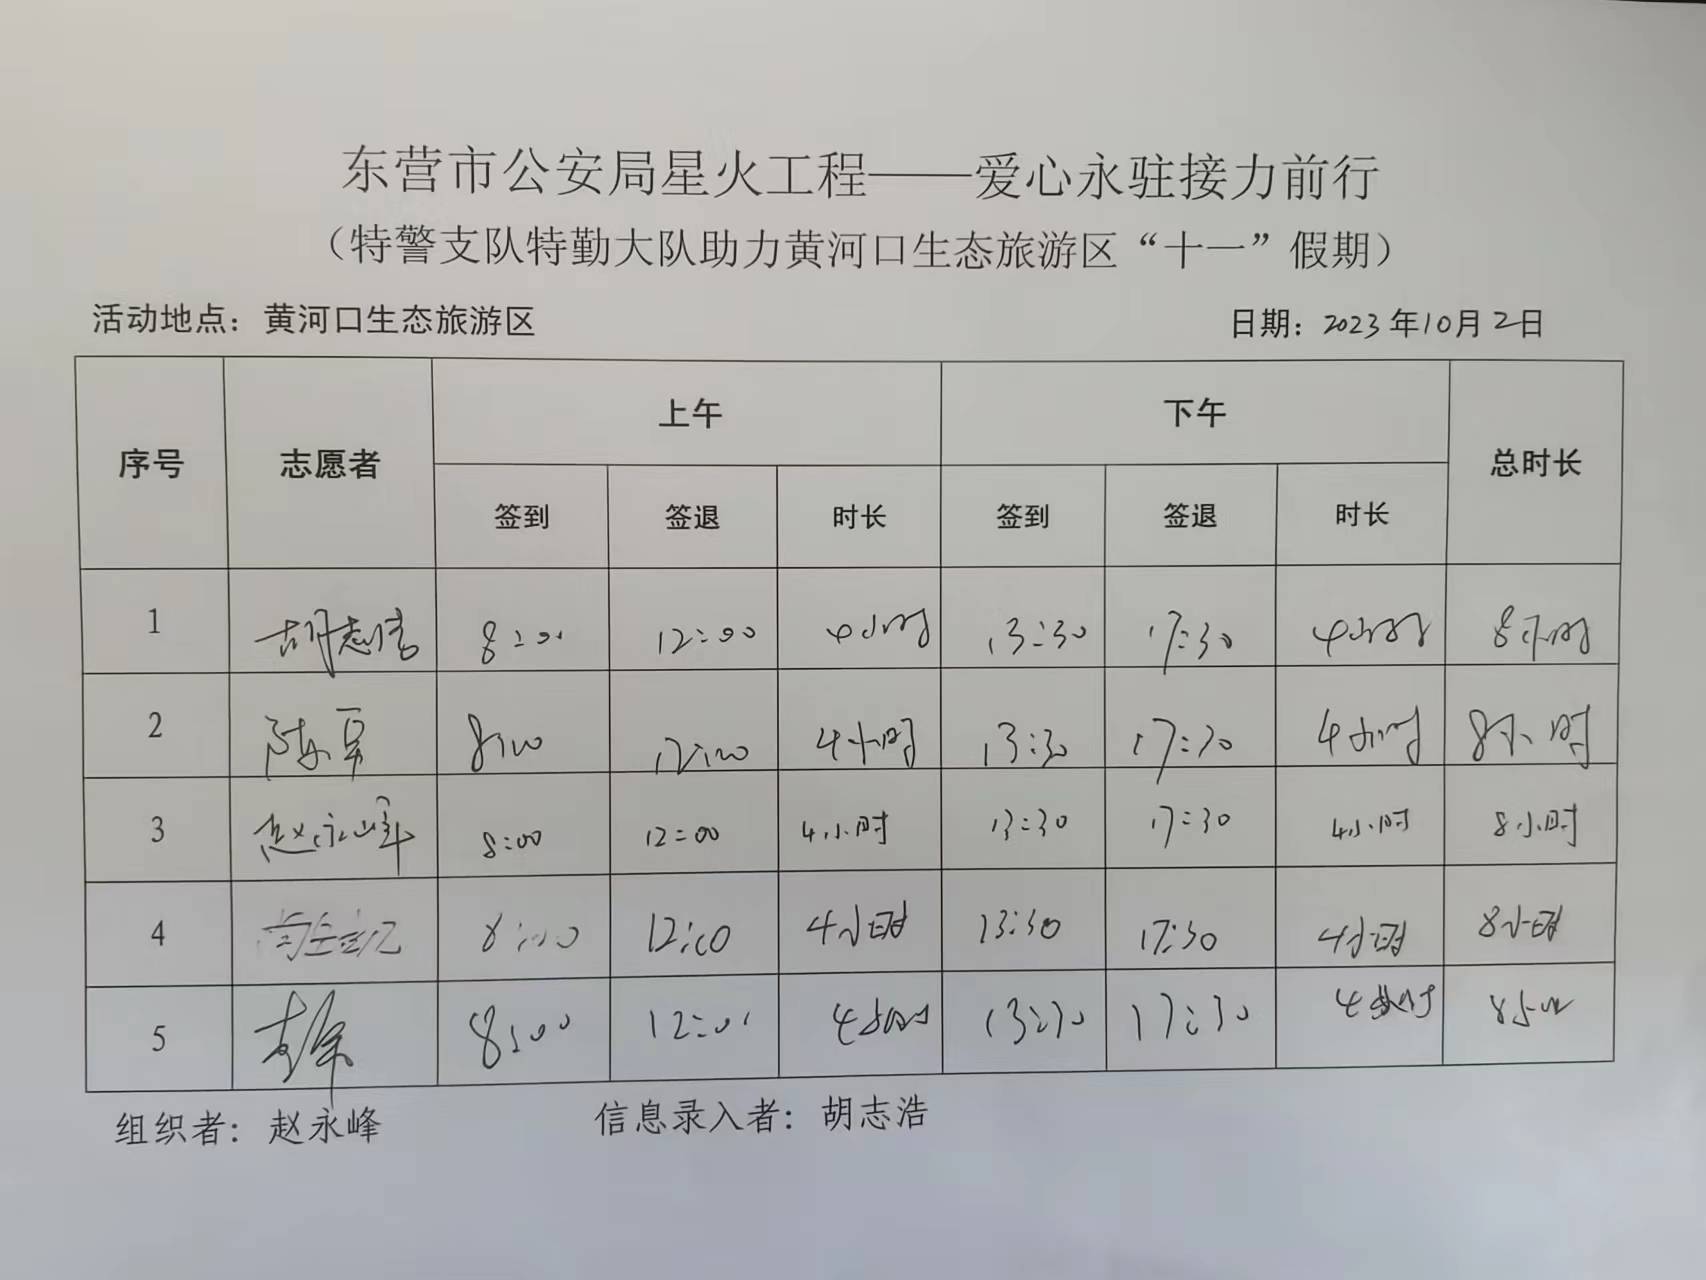 东营市公安局星火工程——爱心永驻接力前行
（特警支队特勤大队助力黄河口生态旅游区“十一”假期）
活动地点：黄河口生态旅游区 日期：2023年10月2日
序号 志愿者 上午 下午 总时长
签到 签退 时长 签到 签退 时长
1 胡志浩 8:00 12:00 4小时 13:30 17:30 4小时 8小时
2 8:00 12:00 4小时 13:30 17:30 4小时 8小时
3 赵永峰 8:00 12:00 4小时 13:30 17:30 4小时 8小时
4 8:00 12:00 4小时 13:30 17:30 4小时 8小时
5 8:00 12:00 4小时 13:30 17:30 4小时 8小时
组织者：赵永峰 信息录入者：胡志浩